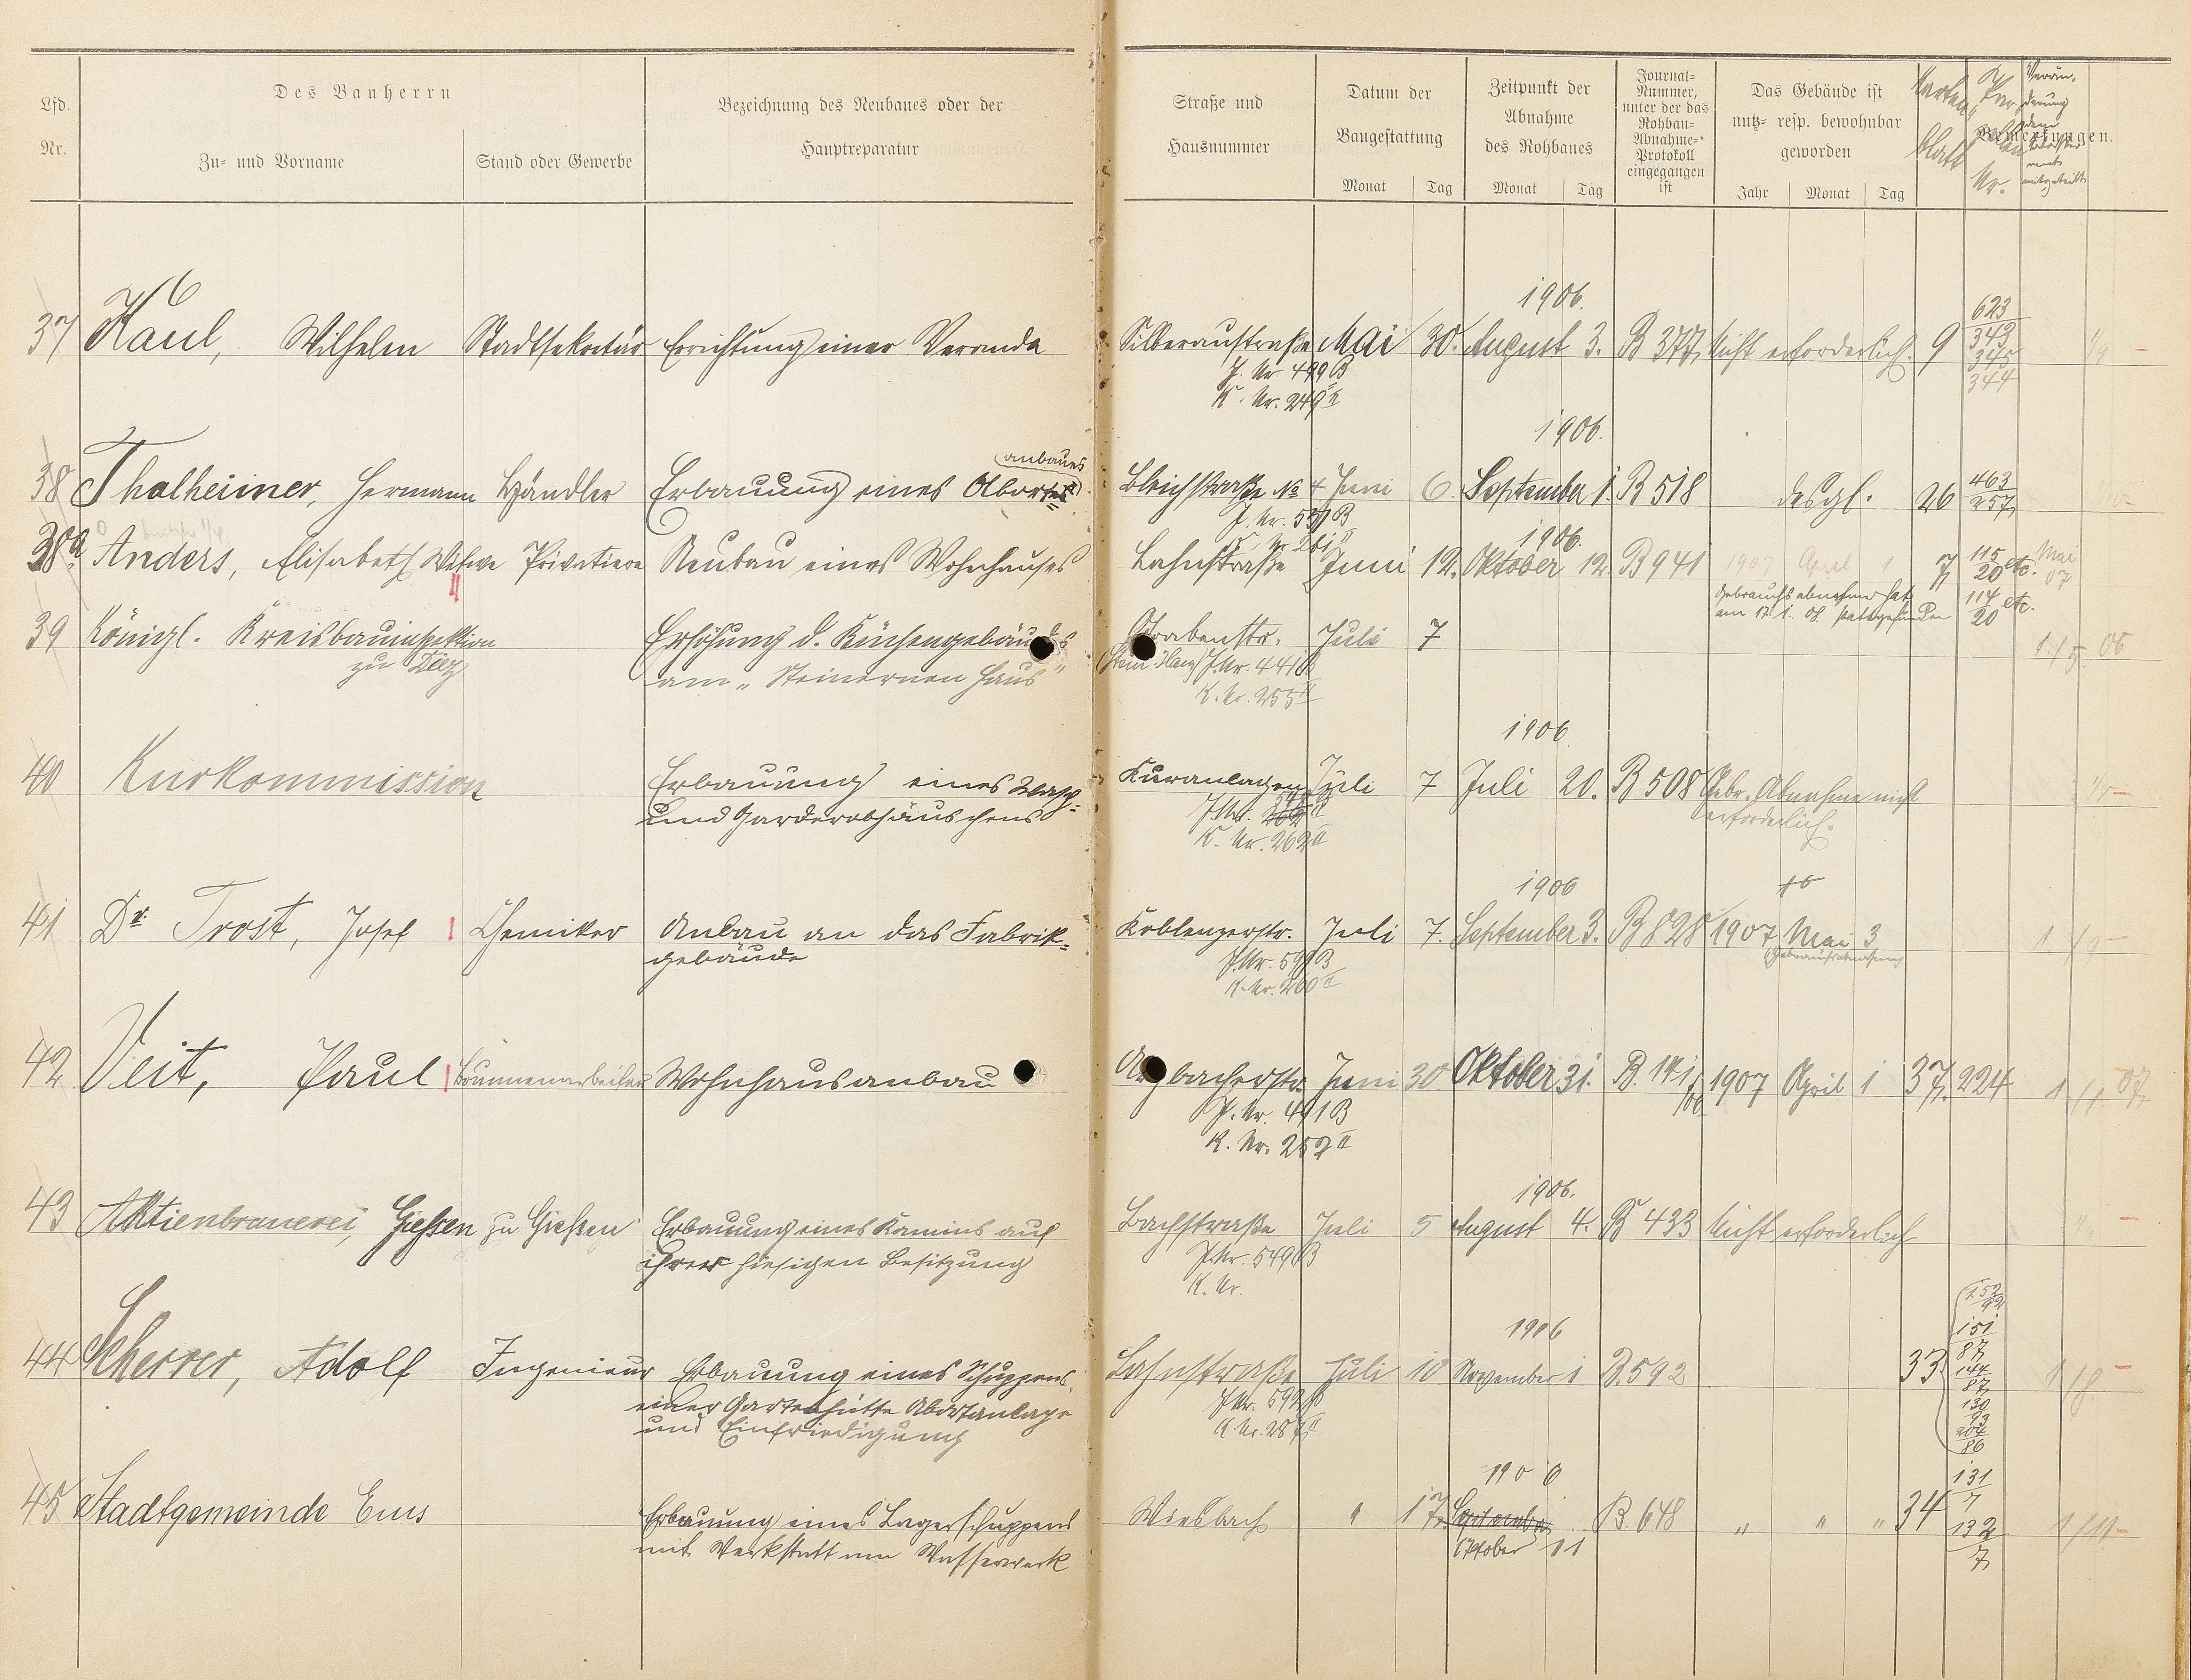 Lfd.
Nr.
Des Bauherrn
Zu- und Vorname
Stand oder Gewerbe
Bezeichnung des Neubaues oder der
Hauptreparatur
Straße und
Hausnummer
Datum der
Baugestattung
Monat Tag
Zeitpunkt der
Abnahme
des Rohbaues
Monat Tag
Journal-
Nummer,
unter der das
Rohbau-
Abnahme-
Protokoll
eingegangen
ist
Das Gebäude ist
nutz- resp. bewohnbar
geworden
Jahr Monat Tag
Karten
blatt
Par
zellen
Nr.
Verän-
derung
dem
mitgeteilt
Bemerkungen.
1906.
623
37 Kaul, Wilhelm Stadtsekretär Errichtung einer Veranda Silberaustraße Mai 30. August 3. B 377 Nicht erforderlich. 9 343
345
344
J. Nr. 499 B
K. Nr. 249 II
1906.
anbaues
38 Thalheimer, Hermann Händler Erbauung eines Abortes Bleichstraße No 4 Juni 6. September 1. B 518 desgl. 26 463
257
J. Nr. 551 B
K. Nr. 261 II
1906.
38a Anders, Elisabeth Witwe Privatiere Neubau eines Wohnhauses Lahnstraße Juni 12. Oktober 12. B 941 1907 April 1 7 115
20 etc. Mai
07
Gebrauchsabnahme hat
am 17.1.08. stattgefunden
114 etc.
20
39 Königl. Kreisbauinspektion Erhöhung d. Küchengebäudes Grabenstr. Juli 7
zu Diez am "Steinernen Haus" J. Nr. 441 B
K. Nr. 255 II
1./5. 06
1906
40 Kurkommission Erbauung eines Wasch- Kuranlagen Juli 7 Juli 20. B 508 Gebr. Abnahme nicht
und Garderobhäuschens erforderlich.
K. Nr. 262 II
1906
41 Dr. Trost, Josef Chemiker Anbau an das Fabrik- Koblenzerstr. Juli 7. September 3. B 828 1907 Mai 3
gebäude J. Nr. 599 B Gebrauchsabnahme
K. Nr. 260 II
42 Veit, Paul Brunnenarbeiter Wohnhausanbau Arzbacherstr. Juni 30 Oktober 31. 1907 April 1 37. 224 1/1 07
J. Nr. 491 B
K. Nr. 252 II
1906.
43 Aktienbrauerei, Gießen zu Gießen Erbauung eines Kamins auf Bachstraße Juli 5 August 4. B 433 Nicht erforderlich
ihrer hiesigen Besitzung J. Nr. 549 B
K. Nr.
1906
44 Scherrer, Adolf Ingenieur Erbauung eines Schuppens, Lahnstraße Juli 10 November 1 B. 592 33
einer Gartenhütte Abortanlage J. Nr. 592 B
und Einfriedigung K. Nr. 287 II
152
92
151
87
144
87
130
93
204
86
1906
45 Stadtgemeinde Ems Erbauung eines Lagerschuppens Wiesbach " 17. September B. 648 " " " 34 131
7
132
7
mit Werkstatt am Wasserwerk Oktober 11
1/11